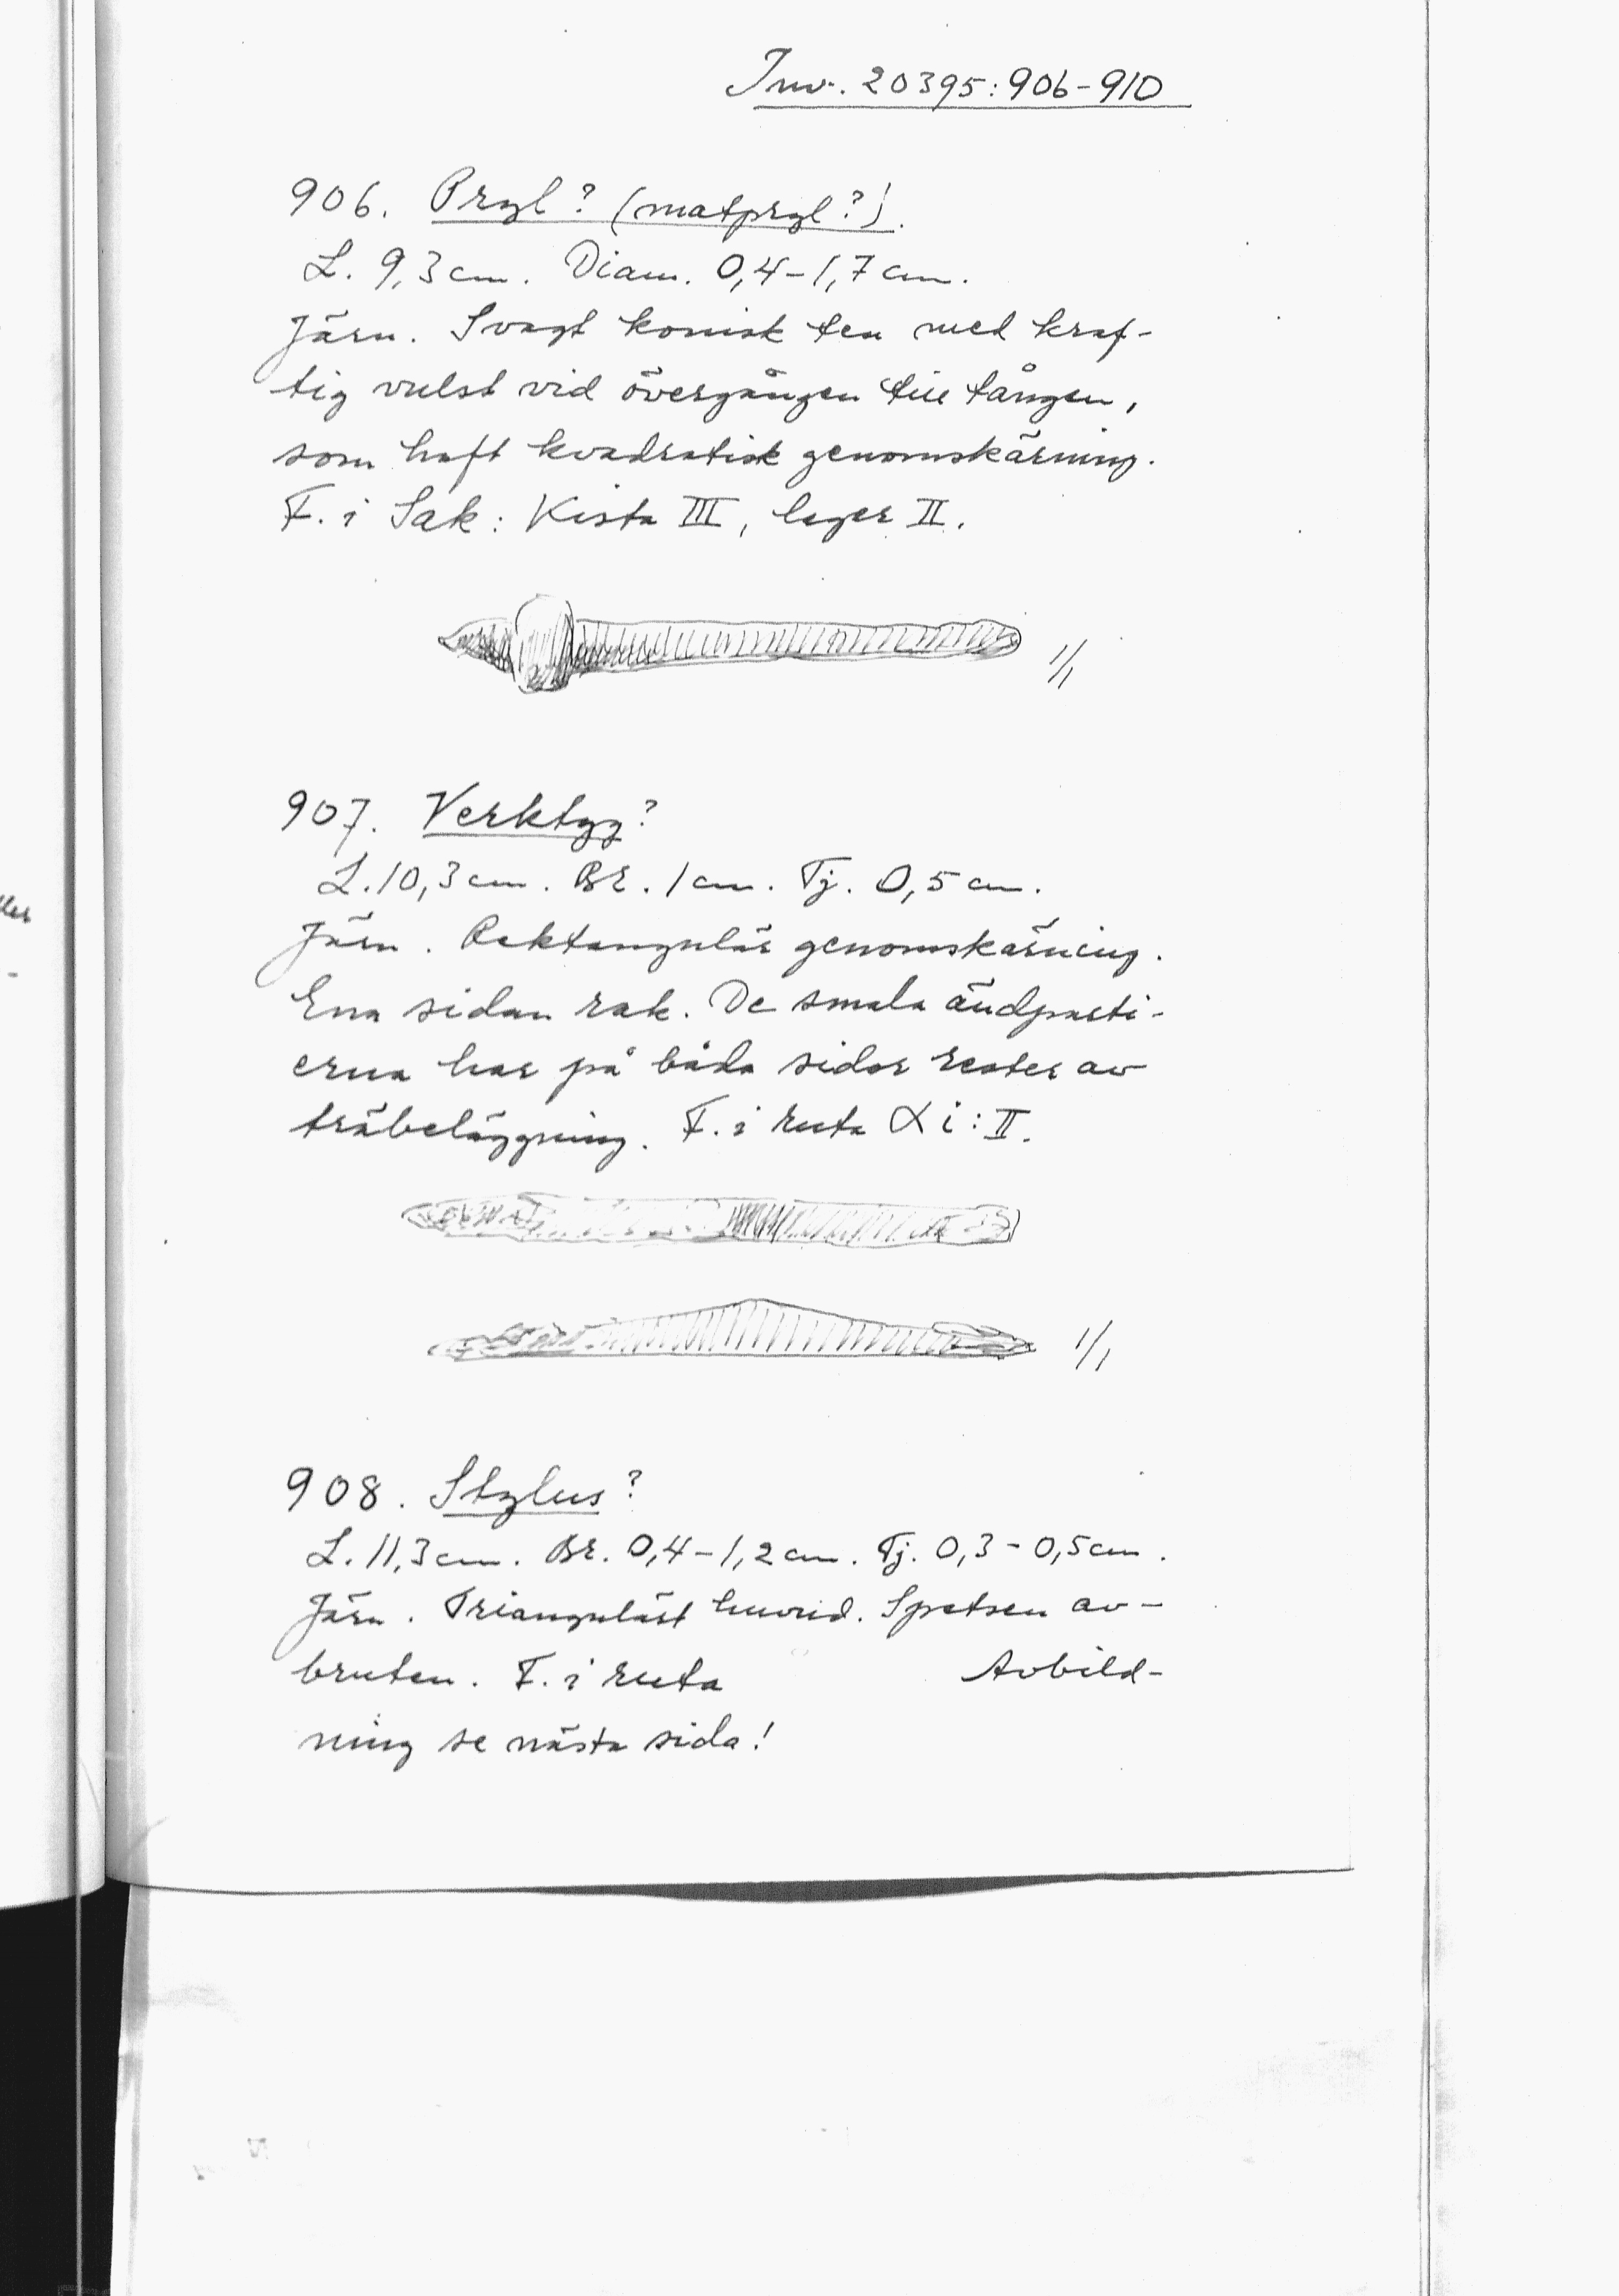 Inv. 20395:906-910
906. Pryl? (matpryl?).
L. 9,3 cm. Diam. 0,4-1,7 cm.
Järn. Svagt konisk ten med kraf-
tig vulst vid övergången till tången,
som haft kvadratisk genomskärning.
F. i Sak: Kista III, lager II.
1/1
907. Verktyg?
L. 10,3 cm. Br. 1 cm. Tj. 0,5 cm.
Järn. Rektangulär genomskärning.
Ena sidan rak. De smala ändparti-
erna har på båda sidor rester av
träbeläggning. F. i ruta X i: II.
1/1
908. Stylus?
L. 11,3 cm. Br. 0,4-1,2 cm. Tj. 0,3-0,5 cm.
Järn. Triangulärt huvud. Spetsen av-
bruten. F. i ruta Avbild-
ning se nästa sida!